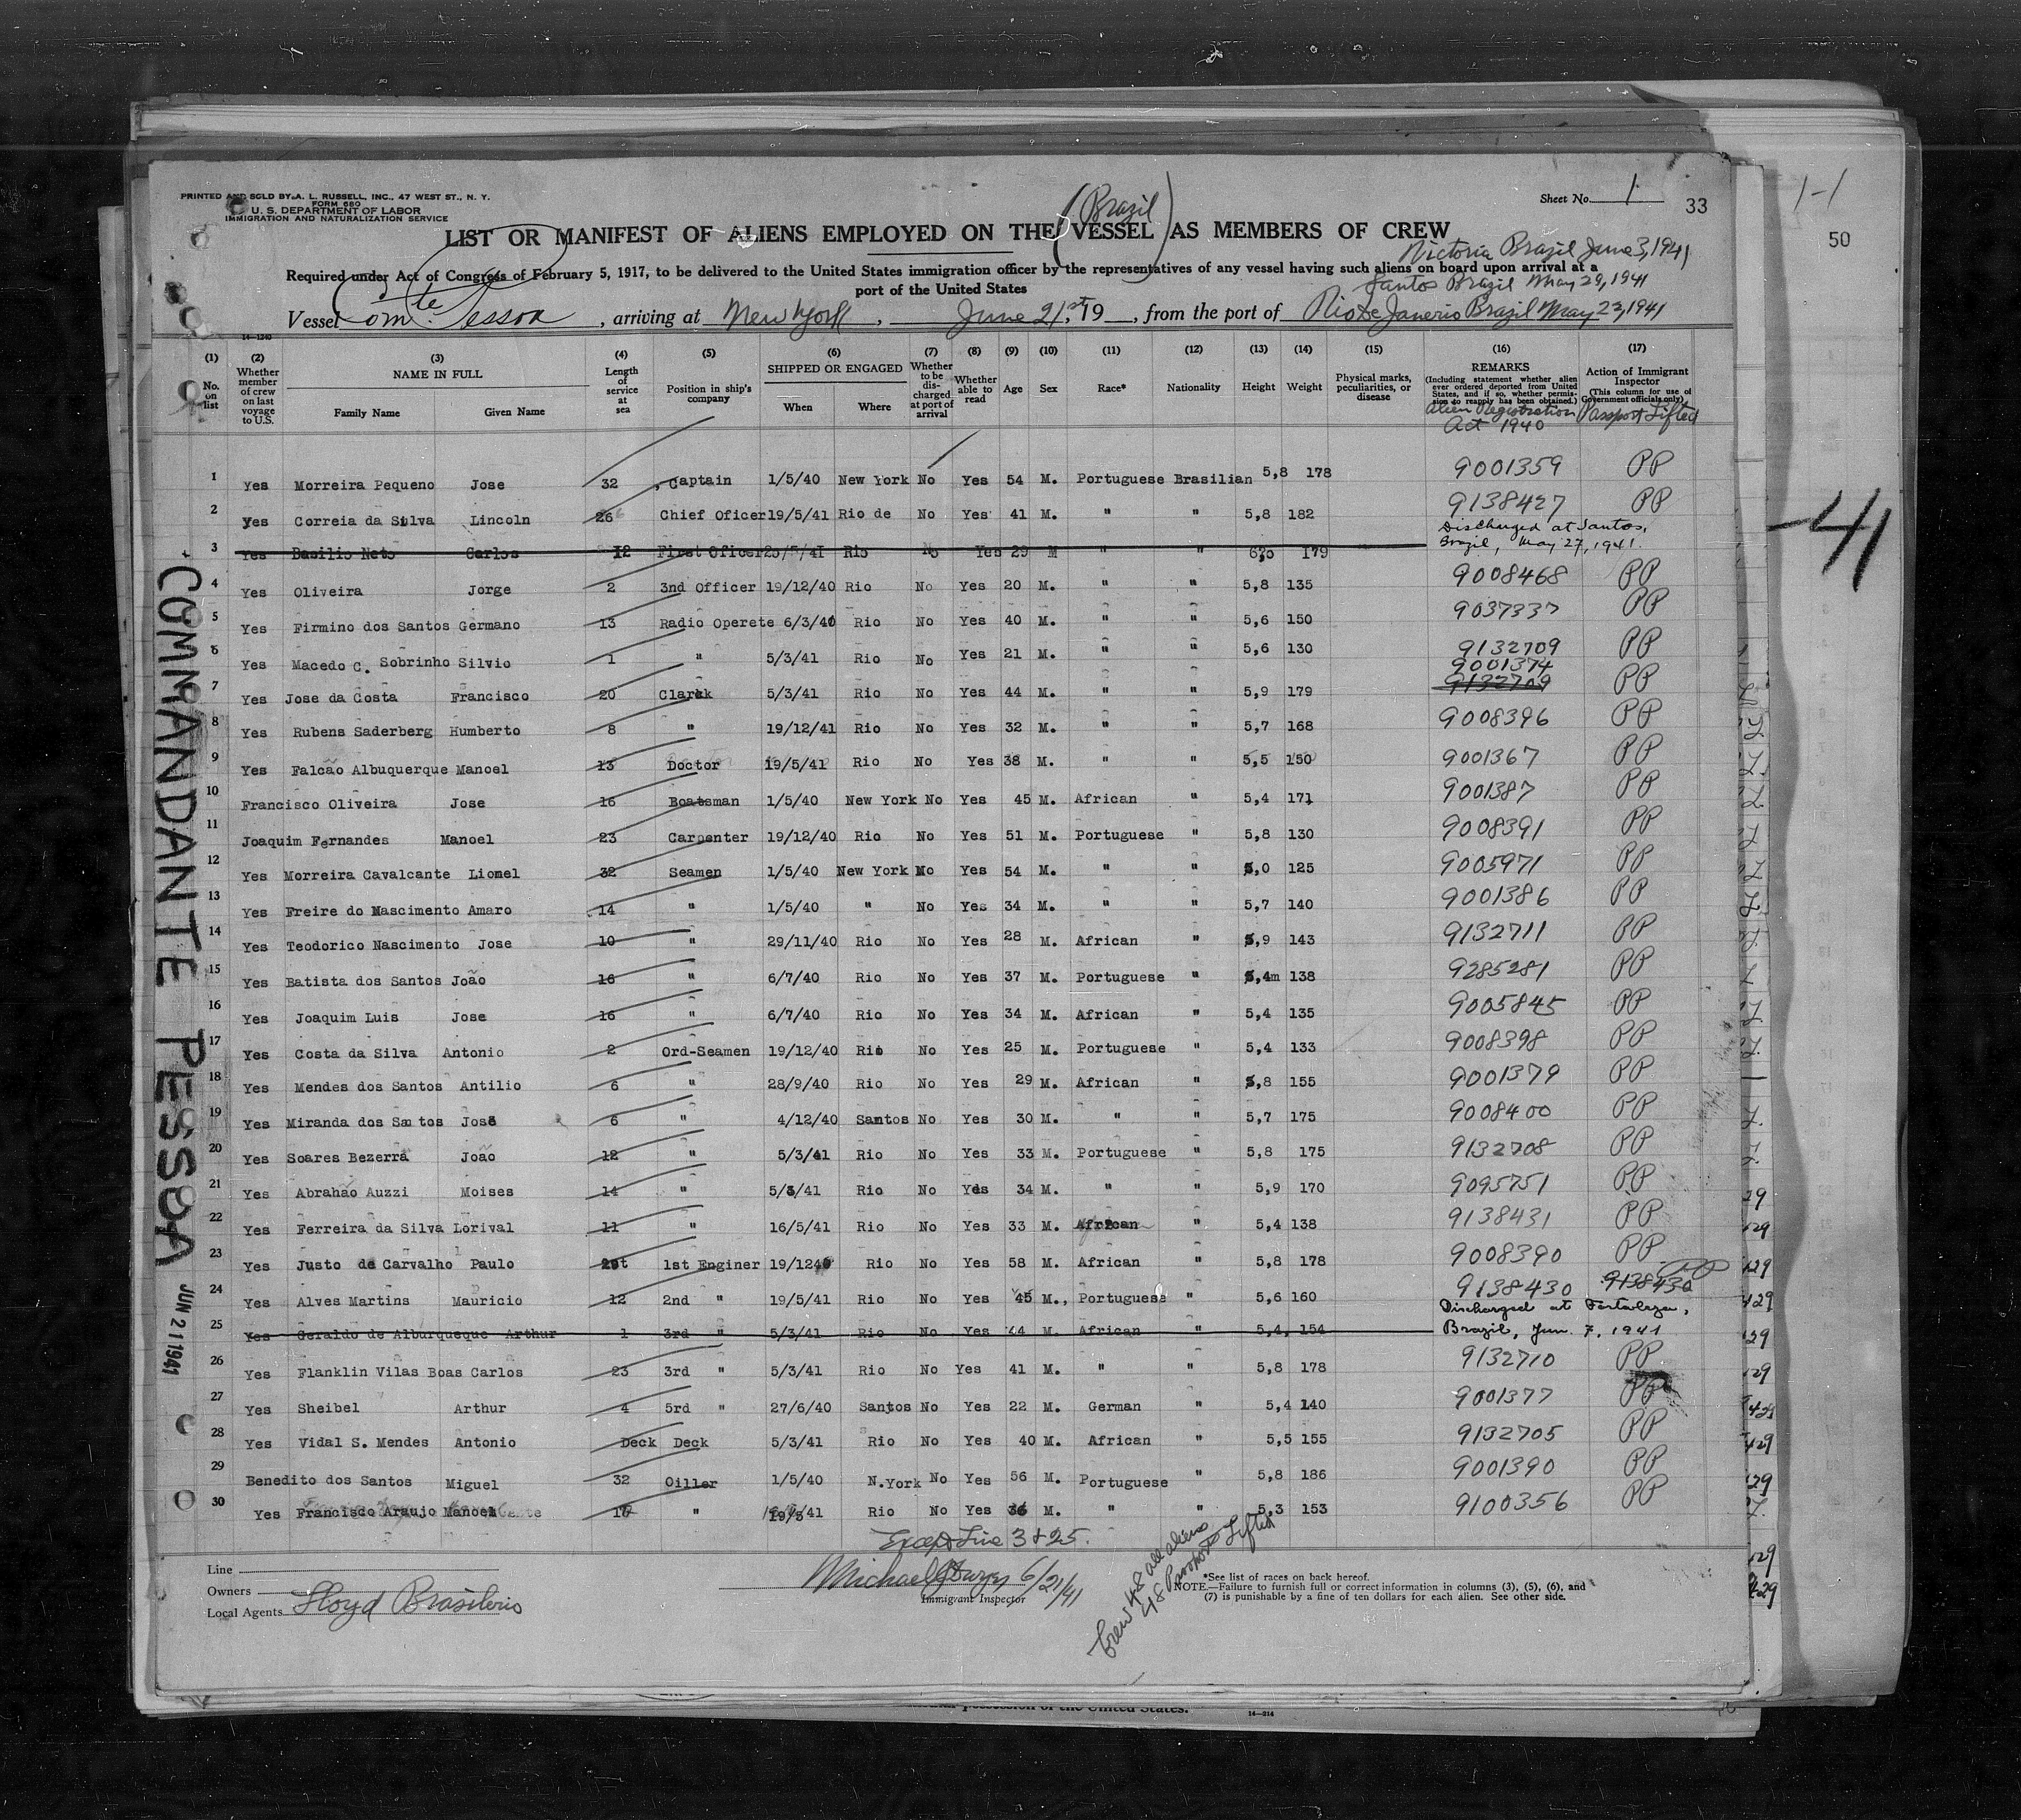 PRINTED AND SOLD BY A. L. RUSSELL, INC., 47 WEST ST., N. Y.
FORM 680
U. S. DEPARTMENT OF LABOR
IMMIGRATION AND NATURALIZATION SERVICE
Sheet No. 1
33
1-1
50
(Brazil)
LIST OR MANIFEST OF ALIENS EMPLOYED ON THE VESSEL AS MEMBERS OF CREW
Victoria Brazil June 3, 1941
Required under Act of Congress of February 5, 1917, to be delivered to the United States immigration officer by the representatives of any vessel having such aliens on board upon arrival at a
port of the United States
Santos Brazil May 29, 1941
Vessel Comte. Pessoa, arriving at New York, June 21st, 19, from the port of Rio de Janerio Brazil May 23, 1941
14-1240
(1) No. on list
(2) Whether member of crew on last voyage to U.S.
(3) NAME IN FULL Family Name Given Name
(4) Length of service at sea
(5) Position in ship's company
(6) SHIPPED OR ENGAGED When Where
(7) Whether to be discharged at port of arrival
(8) Whether able to read
(9) Age
(10) Sex
(11) Race*
(12) Nationality
(13) Height
(14) Weight
(15) Physical marks, peculiarities, or disease
(16) REMARKS (Including statement whether alien ever ordered deported from United States, and if so, whether permission to reapply has been obtained.)
Alien Registration Act 1940
(17) Action of Immigrant Inspector (This column for use of Government officials only)
Passport Lifted
1 Yes Morreira Pequeno Jose 32 Captain 1/5/40 New York No Yes 54 M. Portuguese Brasilian 5,8 178 9001359 PP
2 Yes Correia da Silva Lincoln 26 Chief Oficer 19/5/41 Rio de No Yes 41 M. " " 5,8 182 9138427 PP
3 Yes Basilio Neto Carlos 12 First Oficer 25/5/41 Rio No Yes 29 M " " 179 Discharged at Santos, Brazil, May 27, 1941.
4 Yes Oliveira Jorge 2 3nd Officer 19/12/40 Rio No Yes 20 M. " " 5,8 135 9008468 PP
5 Yes Firmino dos Santos Germano 13 Radio Operete 6/3/40 Rio No Yes 40 M. " " 5,6 150 9037337 PP
6 Yes Macedo C. Sobrinho Silvio 1 " 5/3/41 Rio No Yes 21 M. " " 5,6 130 9132709 PP
7 Yes Jose da Costa Francisco 20 Clarck 5/3/41 Rio No Yes 44 M. " " 5,9 179 9001374 9132709 PP
8 Yes Rubens Saderberg Humberto 8 " 19/12/41 Rio No Yes 32 M. " " 5,7 168 9008396 PP
9 Yes Falcão Albuquerque Manoel 13 Doctor 19/5/41 Rio No Yes 38 M. " " 5,5 150 9001367 PP
10 Francisco Oliveira Jose 16 Boatsman 1/5/40 New York No Yes 45 M. African " 5,4 171 9001387 PP
11 Joaquim Fernandes Manoel 23 Carpenter 19/12/40 Rio No Yes 51 M. Portuguese " 5,8 130 9008391 PP
12 Yes Morreira Cavalcante Lionel 32 Seamen 1/5/40 New York No Yes 54 M. " " 5,0 125 9005971 PP
13 Yes Freire do Nascimento Amaro 14 " 1/5/40 " No Yes 34 M. " " 5,7 140 9001386 PP
14 Yes Teodorico Nascimento Jose 10 " 29/11/40 Rio No Yes 28 M. African " 5,9 143 9132711 PP
15 Yes Batista dos Santos João 16 " 6/7/40 Rio No Yes 37 M. Portuguese " 5,4m 138 9285281 PP
16 Yes Joaquim Luis Jose 16 " 6/7/40 Rio No Yes 34 M. African " 5,4 135 9005845 PP
17 Yes Costa da Silva Antonio 2 Ord-Seamen 19/12/40 Rio No Yes 25 M. Portuguese " 5,4 133 9008398 PP
18 Yes Mendes dos Santos Antilio 6 " 28/9/40 Rio No Yes 29 M. African " 5,8 155 9001379 PP
19 Yes Miranda dos Santos José 6 " 4/12/40 Santos No Yes 30 M. " " 5,7 175 9008400 PP
20 Yes Soares Bezerra João 12 " 5/3/41 Rio No Yes 33 M. Portuguese " 5,8 175 9132708 PP
21 Yes Abrahão Auzzi Moises 14 " 5/3/41 Rio No Yes 34 M. " " 5,9 170 9095751 PP
22 Yes Ferreira da Silva Lorival 11 " 16/5/41 Rio No Yes 33 M. African " 5,4 138 9138431 PP
23 Yes Justo de Carvalho Paulo 1st Enginer 19/1240 Rio No Yes 58 M. African " 5,8 178 9008390 PP
24 Yes Alves Martins Mauricio 12 2nd " 19/5/41 Rio No Yes 45 M., Portuguese " 5,6 160 9138430 9138430 PP
25 Yes Geraldo de Alburqueque Arthur 1 3rd " 5/3/41 Rio No Yes 44 M. African " 5,4, 154 Discharged at Fortaleza, Brazil, Jun. 7, 1941
26 Yes Flanklin Vilas Boas Carlos 23 3rd " 5/3/41 Rio No Yes 41 M. " " 5,8 178 9132710 PP
27 Yes Sheibel Arthur 4 5rd " 27/6/40 Santos No Yes 22 M. German " 5,4 140 9001377 PP
28 Yes Vidal S. Mendes Antonio Deck Deck 5/3/41 Rio No Yes 40 M. African " 5,5 155 9132705 PP
29 Benedito dos Santos Miguel 32 Oiller 1/5/40 N.York No Yes 56 M. Portuguese " 5,8 186 9001390 PP
30 Yes Francisco Araujo Manoel 17 " 19/5/41 Rio No Yes 36 M. " " 5,3 153 9100356 PP
Except Line 3 & 25.
COMMANDANTE PESSOA JUN 21 1941
-41
Line
Owners
Local Agents Lloyd Brasilerio
Michael 6/21/41
Immigrant Inspector
Crew 48 all aliens
48 Passports Lifted
*See list of races on back hereof.
NOTE.—Failure to furnish full or correct information in columns (3), (5), (6), and
(7) is punishable by a fine of ten dollars for each alien. See other side.
possession of the United States.
14-214